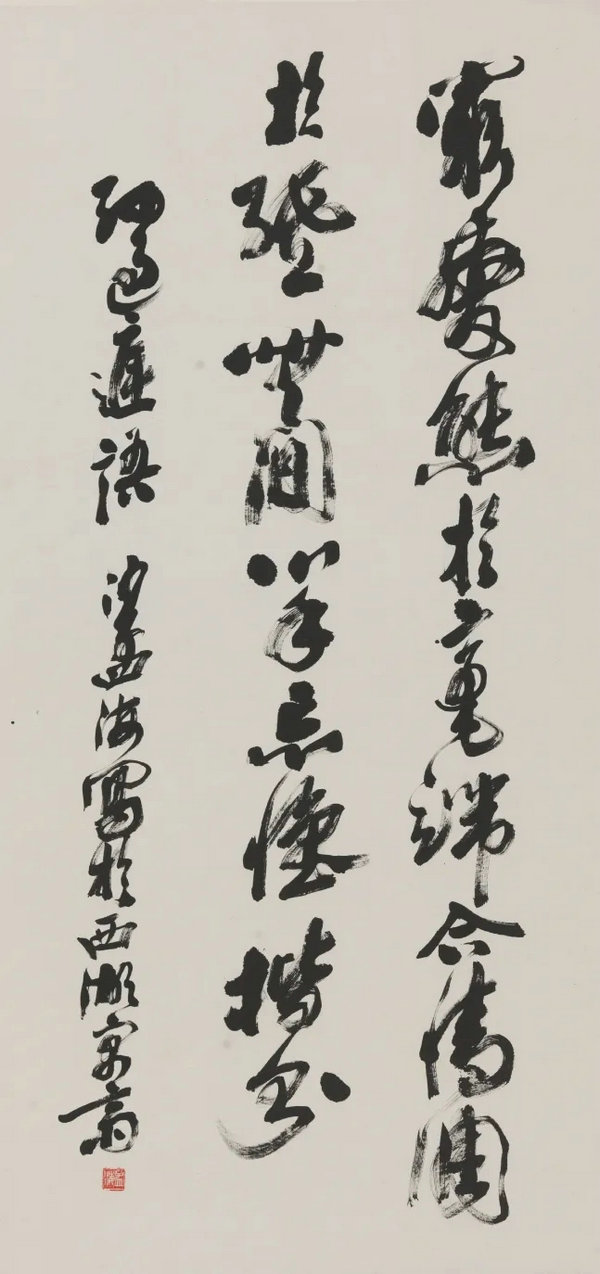 窮變態於毫端合情調
於紙上無間心手忘懷楷則
孫過庭語 沙孟海寫於西湖寓齋